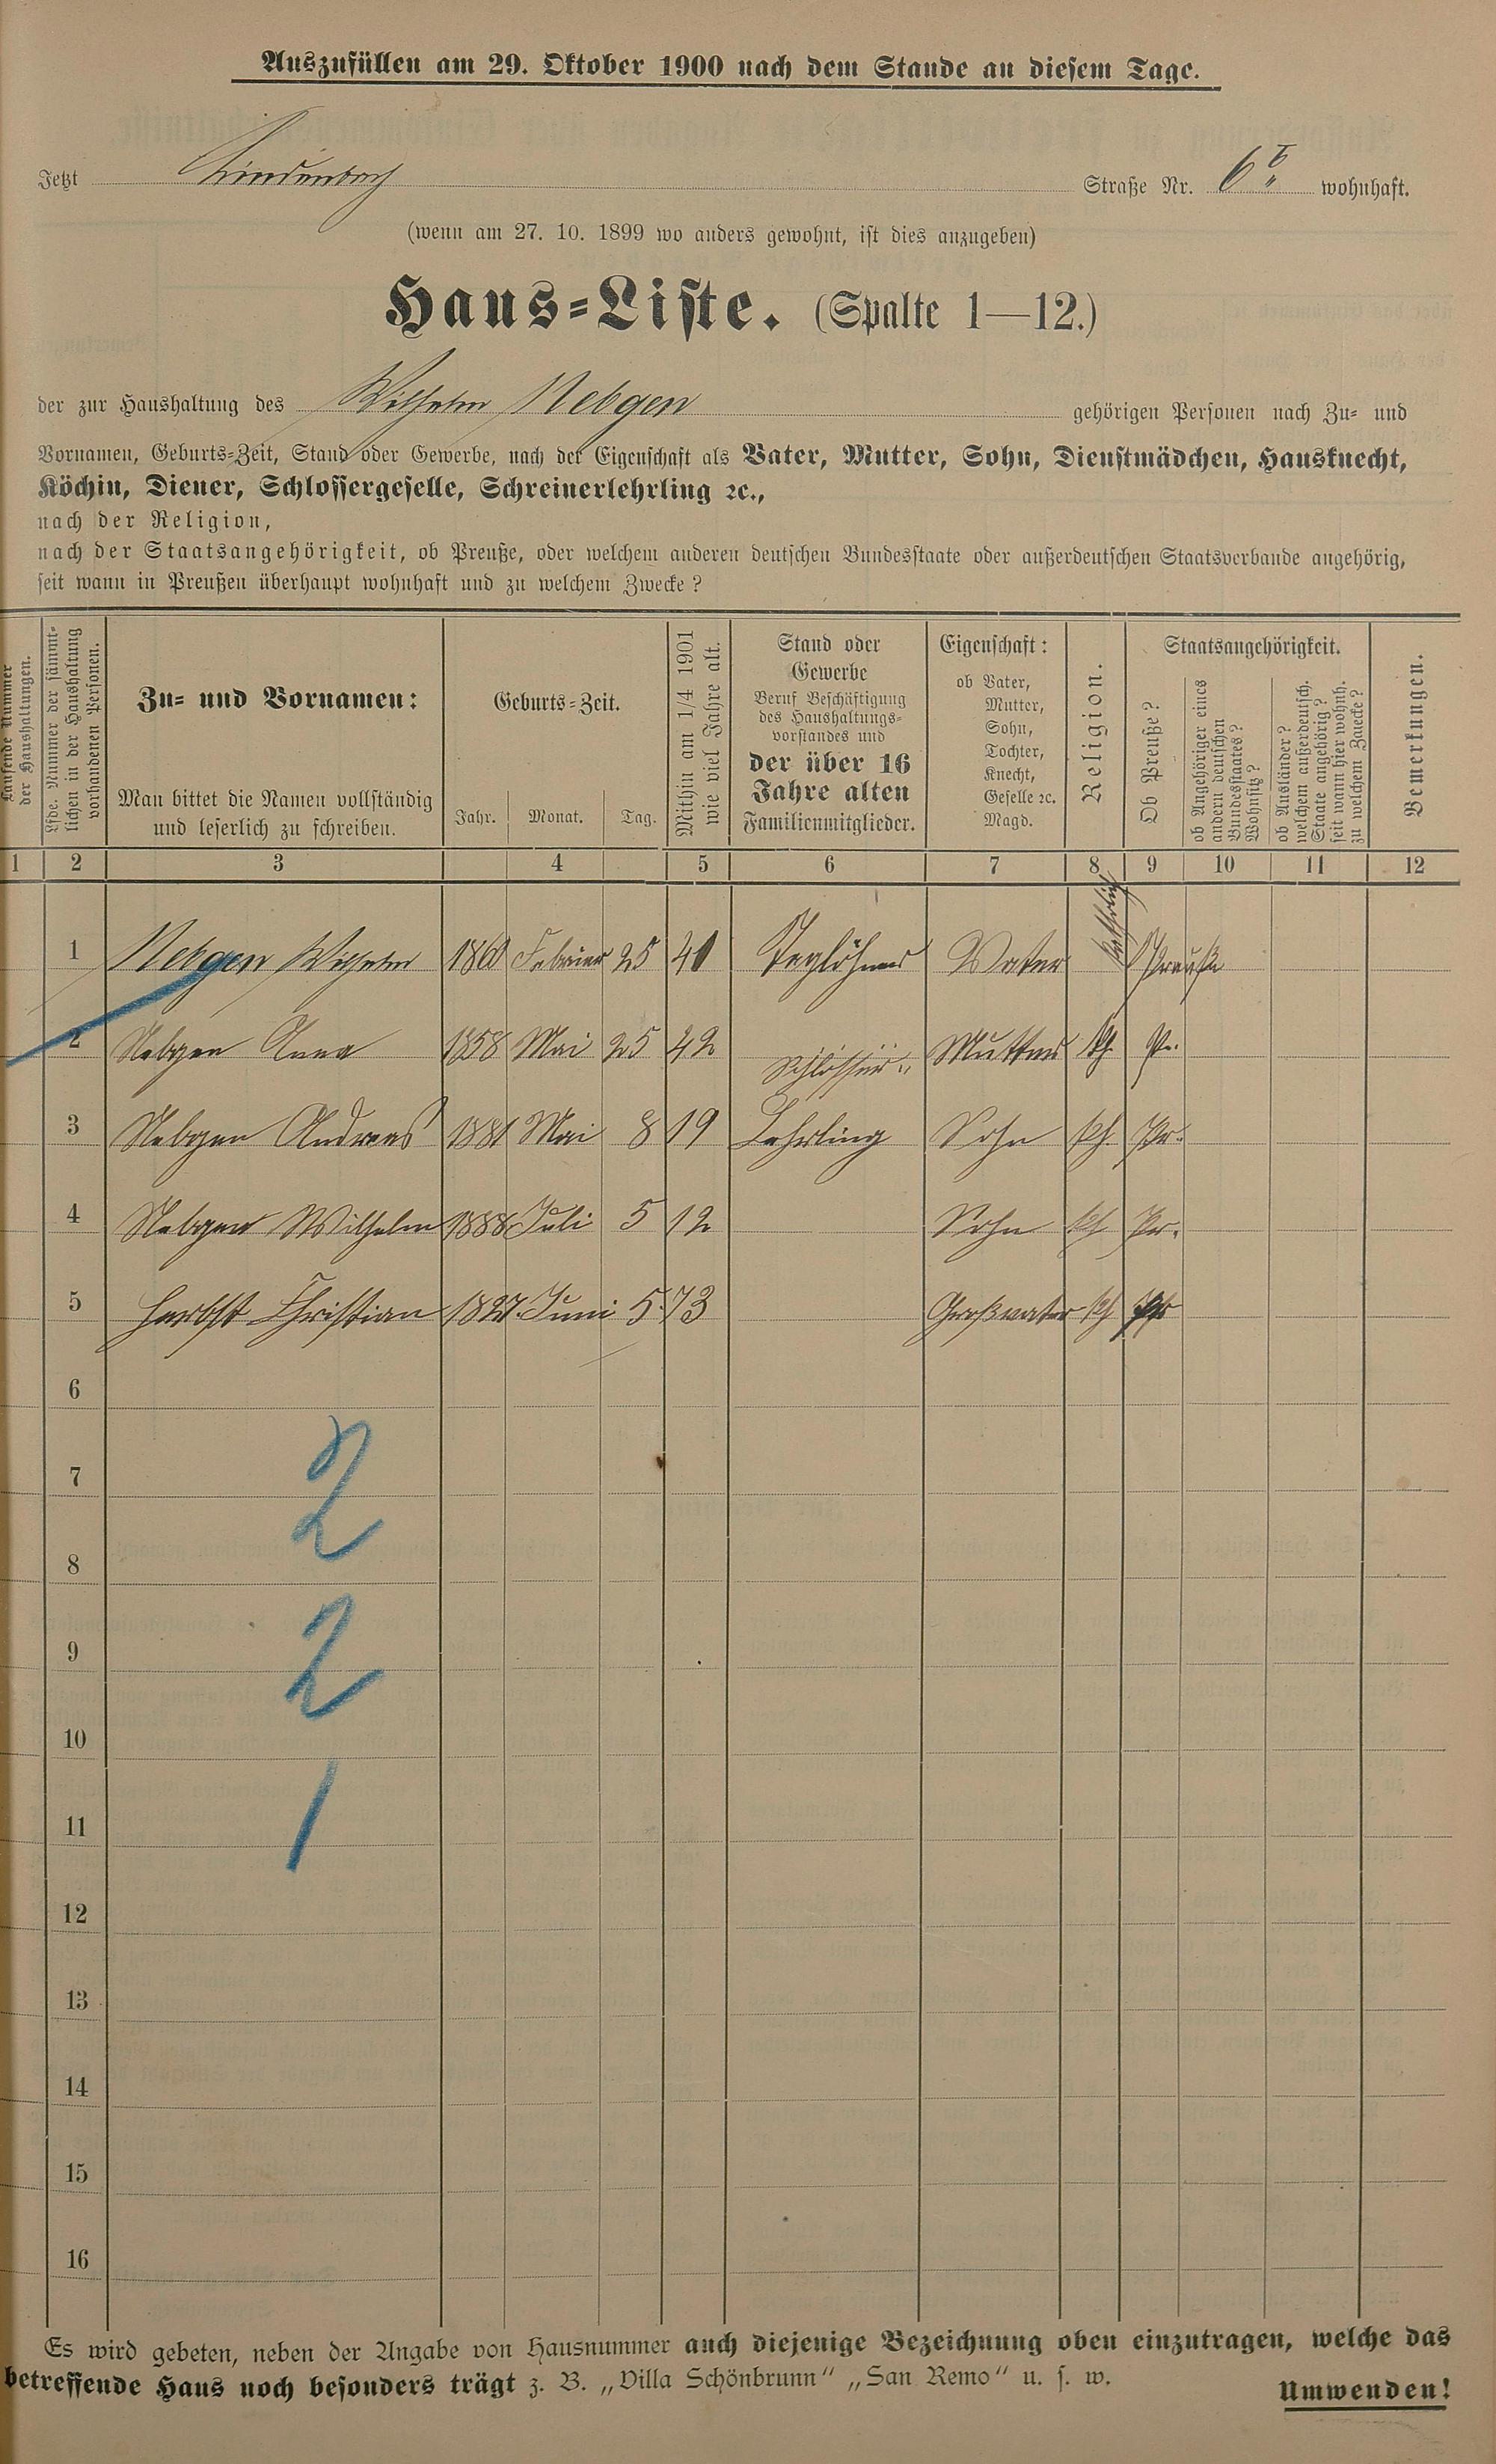 Auszufüllen am 29. Oktober 1900 nach dem Stande an diesem Tage.
Jetzt Lindenbach Straße Nr. 6 wohnhaft.
(wenn am 27. 10. 1899 wo anders gewohnt, ist dies anzugeben)
Haus=Liste. (Spalte 1—12.)
der zur Haushaltung des Wilhelm Nebgen gehörigen Personen nach Zu= und
Vornamen, Geburts=Zeit, Stand oder Gewerbe, nach der Eigenschaft als Vater, Mutter, Sohn, Dienstmädchen, Hausknecht,
Köchin, Diener, Schlossergeselle, Schreinerlehrling ꝛc.,
nach der Religion,
nach der Staatsangehörigkeit, ob Preuße, oder welchem anderen deutschen Bundesstaate oder außerdeutschen Staatsverbande angehörig,
seit wann in Preußen überhaupt wohnhaft und zu welchem Zwecke?
Laufende Nummer
der Haushaltungen.
Lfde. Nummer der sämmt-
lichen in der Haushaltung
vorhandenen Personen.
Zu= und Vornamen:
Man bittet die Namen vollständig
und leserlich zu schreiben.
Geburts=Zeit.
Jahr. Monat. Tag.
Mithin am 1/4 1901
wie viel Jahre alt.
Stand oder
Gewerbe
Beruf Beschäftigung
des Haushaltungs=
vorstandes und
der über 16
Jahre alten
Familienmitglieder.
Eigenschaft:
ob Vater,
Mutter,
Sohn,
Tochter,
Knecht,
Geselle ꝛc.
Magd.
Religion.
Staatsangehörigkeit.
Ob Preuße?
ob Angehöriger eines
andern deutschen
Bundesstaates?
Wohnsitz?
ob Ausländer?
welchem außerdeutsch.
Staate angehörig?
seit wann hier wohnh.
zu welchem Zwecke?
Bemerkungen.
1 2 3 4 5 6 7 8 9 10 11 12
1 Nebgen Wilhelm 1860 Februar 25 40 Taglöhner Vater Preuße
2 Nebgen Anna 1858 Mai 25 42 Mutter kh. Pr.
Schlosser=
3 Nebgen Andreas 1881 Mai 8 19 Lehrling Sohn kh. Pr.
4 Nebgen Wilhelm 1888 Juli 5 12 Sohn kh Pr.
5 Herbst Christian 1827 Juni 5 73 Großvater kh Pr
6
7
2
8
9
2
10
11
1
12
13
14
15
16
Es wird gebeten, neben der Angabe von Hausnummer auch diejenige Bezeichnung oben einzutragen, welche das
betreffende Haus noch besonders trägt z. B. „Villa Schönbrunn“ „San Remo“ u. s. w.
Umwenden!